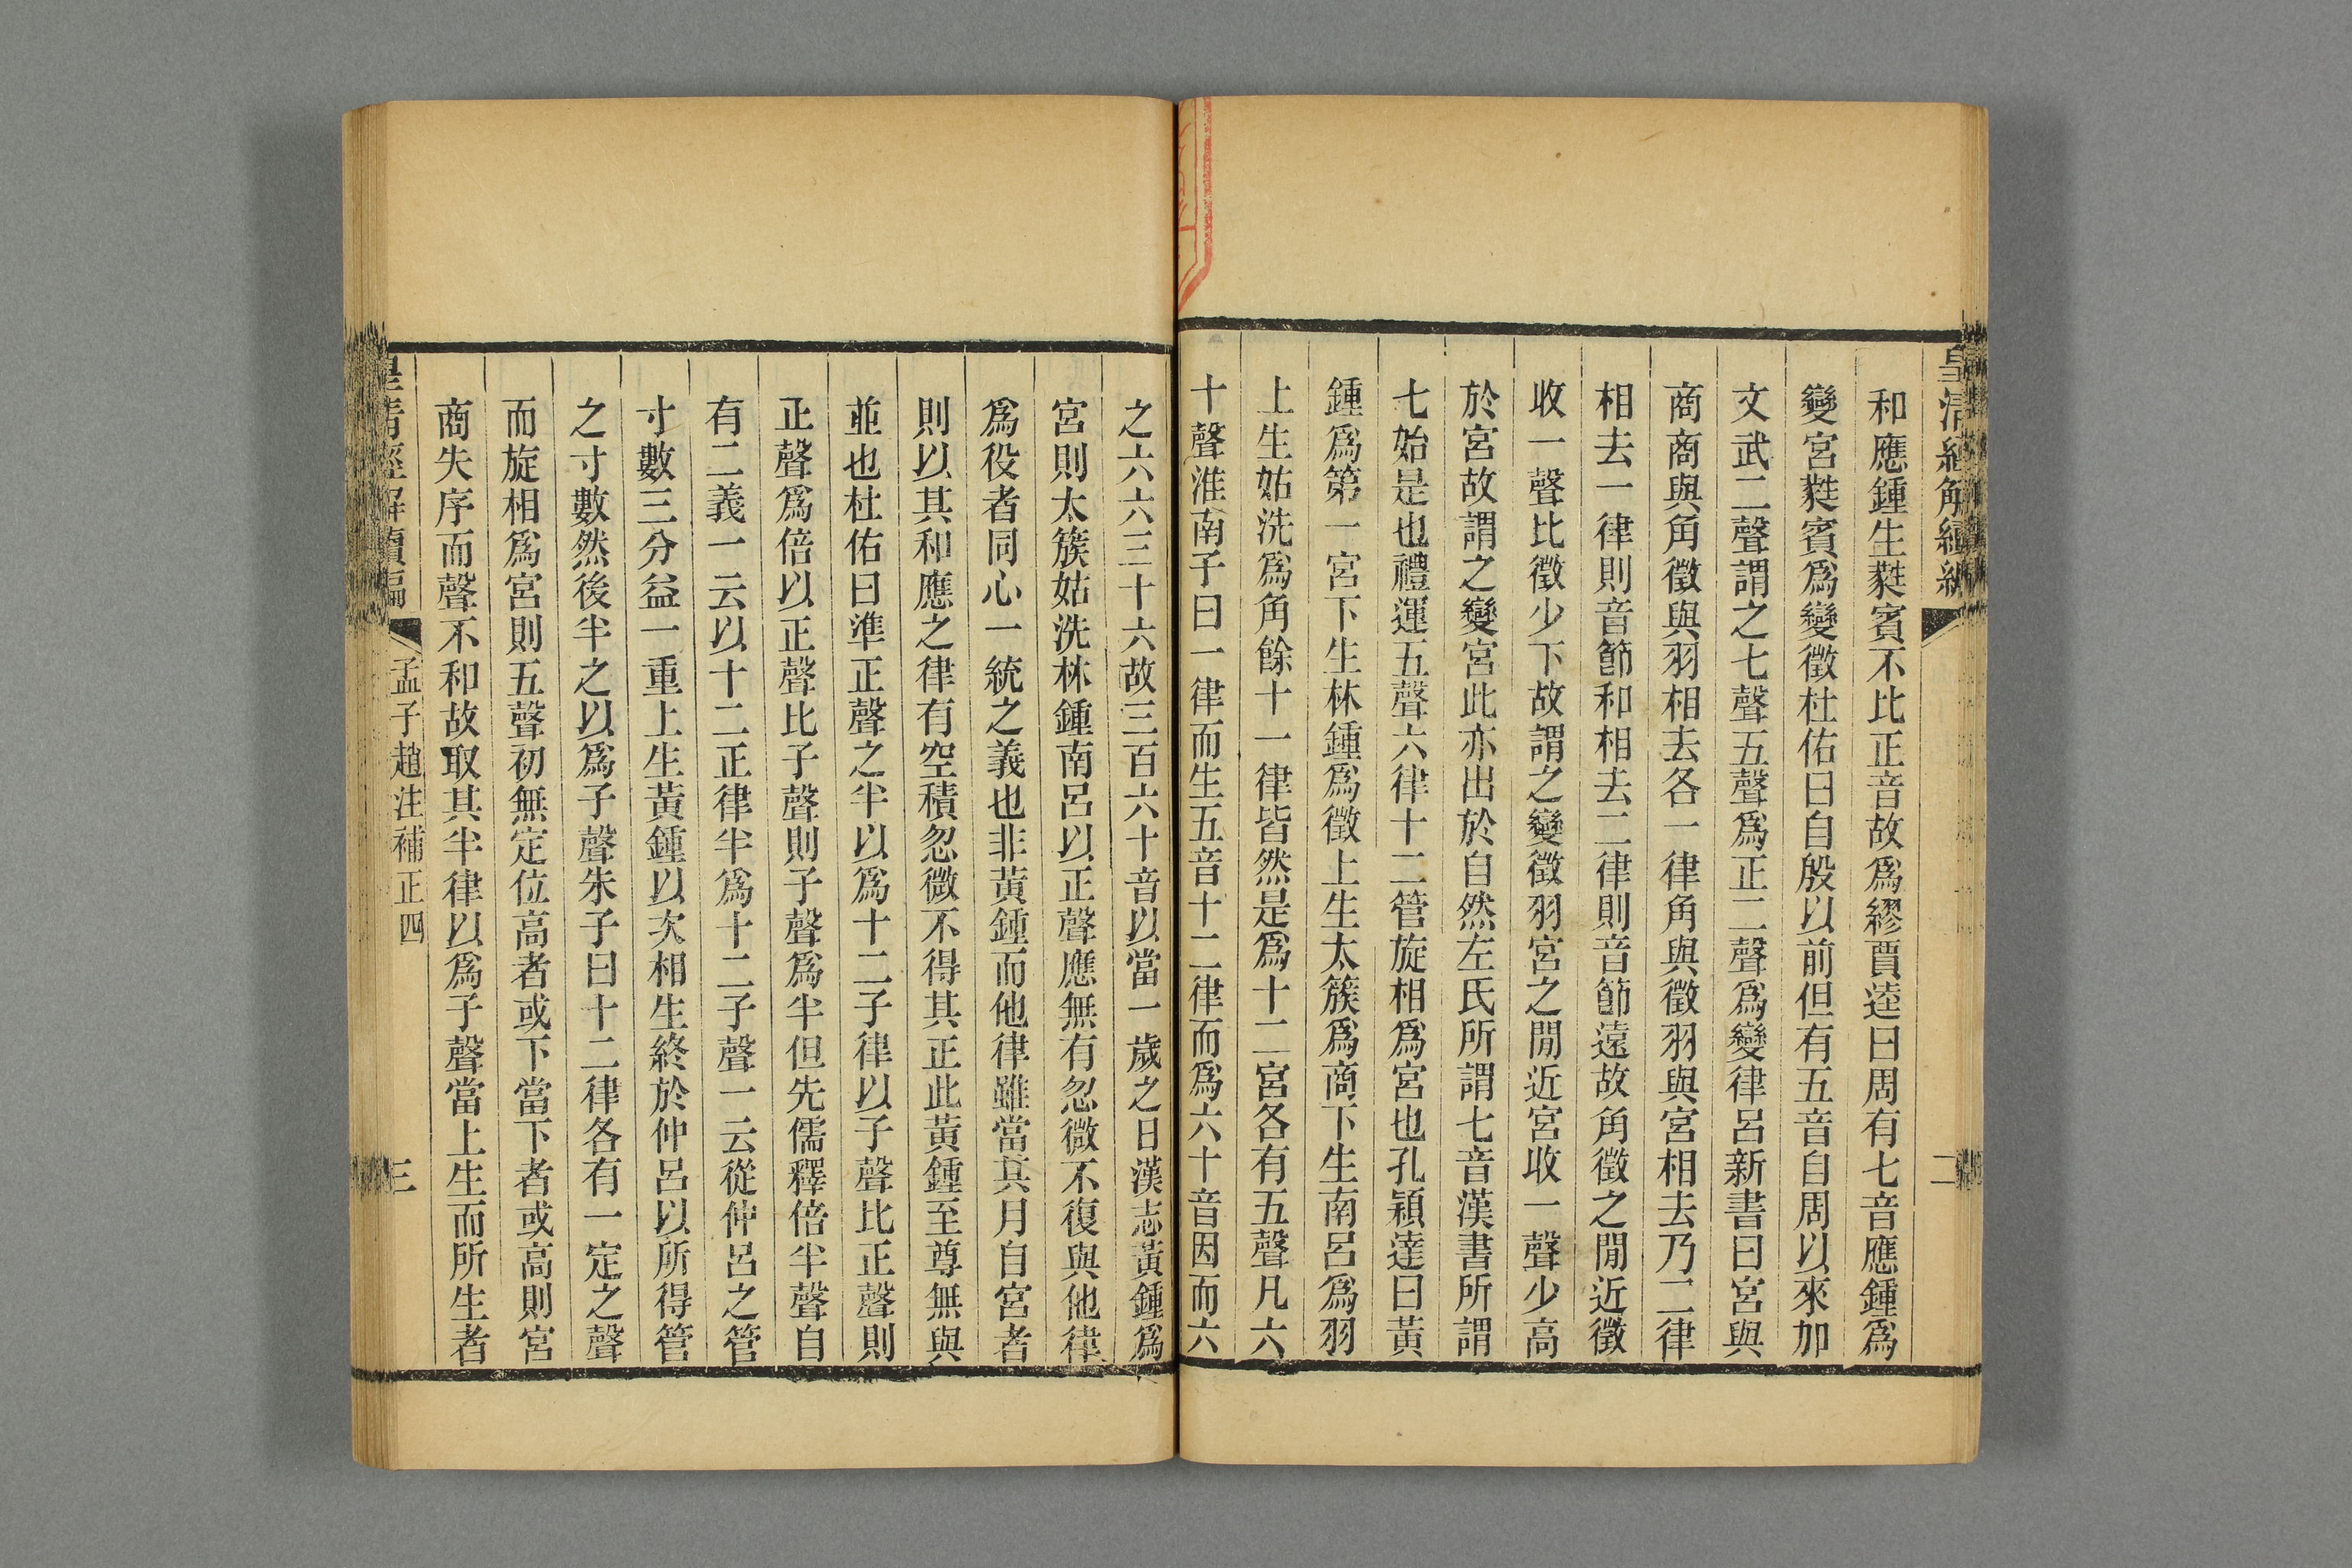 皇清經解續編
二
和應鍾生蕤賓不比正音故爲繆賈逵曰周有七音應鍾爲
變宮蕤賓爲變徵杜佑曰自殷以前但有五音自周以來加
文武二聲謂之七聲五聲爲正二聲爲變律呂新書曰宮與
商商與角徵與羽相去各一律角與徵羽與宮相去乃二律
相去一律則音節和相去二律則音節遠故角徵之閒近徵
收一聲比徵少下故謂之變徵羽宮之閒近宮收一聲少高
於宮故謂之變宮此亦出於自然左氏所謂七音漢書所謂
七始是也禮運五聲六律十二管旋相爲宮也孔穎達曰黃
鍾爲第一宮下生林鍾爲徵上生太簇爲商下生南呂爲羽
上生姑洗爲角餘十一律皆然是爲十二宮各有五聲凡六
十聲淮南子曰一律而生五音十二律而爲六十音因而六
之六六三十六故三百六十音以當一歲之日漢志黃鍾爲
宮則太簇姑洗林鍾南呂以正聲應無有忽微不復與他律
爲役者同心一統之義也非黃鍾而他律雖當其月自宮者
則以其和應之律有空積忽微不得其正此黃鍾至尊無與
並也杜佑曰準正聲之半以爲十二子律以子聲比正聲則
正聲爲倍以正聲比子聲則子聲爲半但先儒釋倍半聲自
有二義一云以十二正律半爲十二子聲一云從仲呂之管
寸數三分益一重上生黃鍾以次相生終於仲呂以所得管
之寸數然後半之以爲子聲朱子曰十二律各有一定之聲
而旋相爲宮則五聲初無定位高者或下當下者或高則宮
商失序而聲不和故取其半律以爲子聲當上生而所生者
皇清經解續編
孟子趙注補正四
三